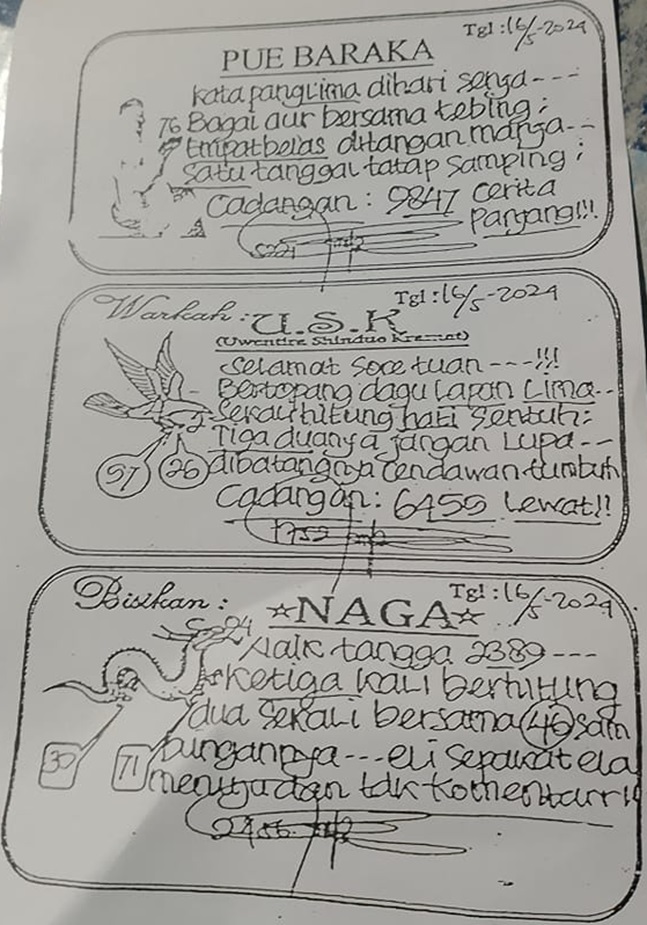 Tgl : 16/5-2024
PUE BARAKA
Kata pangLima dihari senja---
76 Bagai aur bersama tebing ;
Empat belas ditangan manja--
Satu tanggal tatap samping ;
Cadangan : 9847 Cerita
Panjang!!!
Tgl : 16/5-2024
Warkah : U.S.K
(Uwentira Shinduo Kramat)
Selamat Sore tuan ---!!!
Bertopang dagu Lapan Lima--
Sekali hitung hati Sentuh :
Tiga duanya jangan Lupa --
57 26 dibatangnya Cendawan tumbuh
Cadangan : 6455 Lewat!!
1752
Tgl : 16/5-2024
Bisikan : ☆NAGA☆
24
Naik tangga 2389 ---
Ketiga kali berhitung
dua Sekali bersama 46 Sam
30 71 bungannya --- eli Sepakat ela
menyudan tdk Komentarr!!
2456